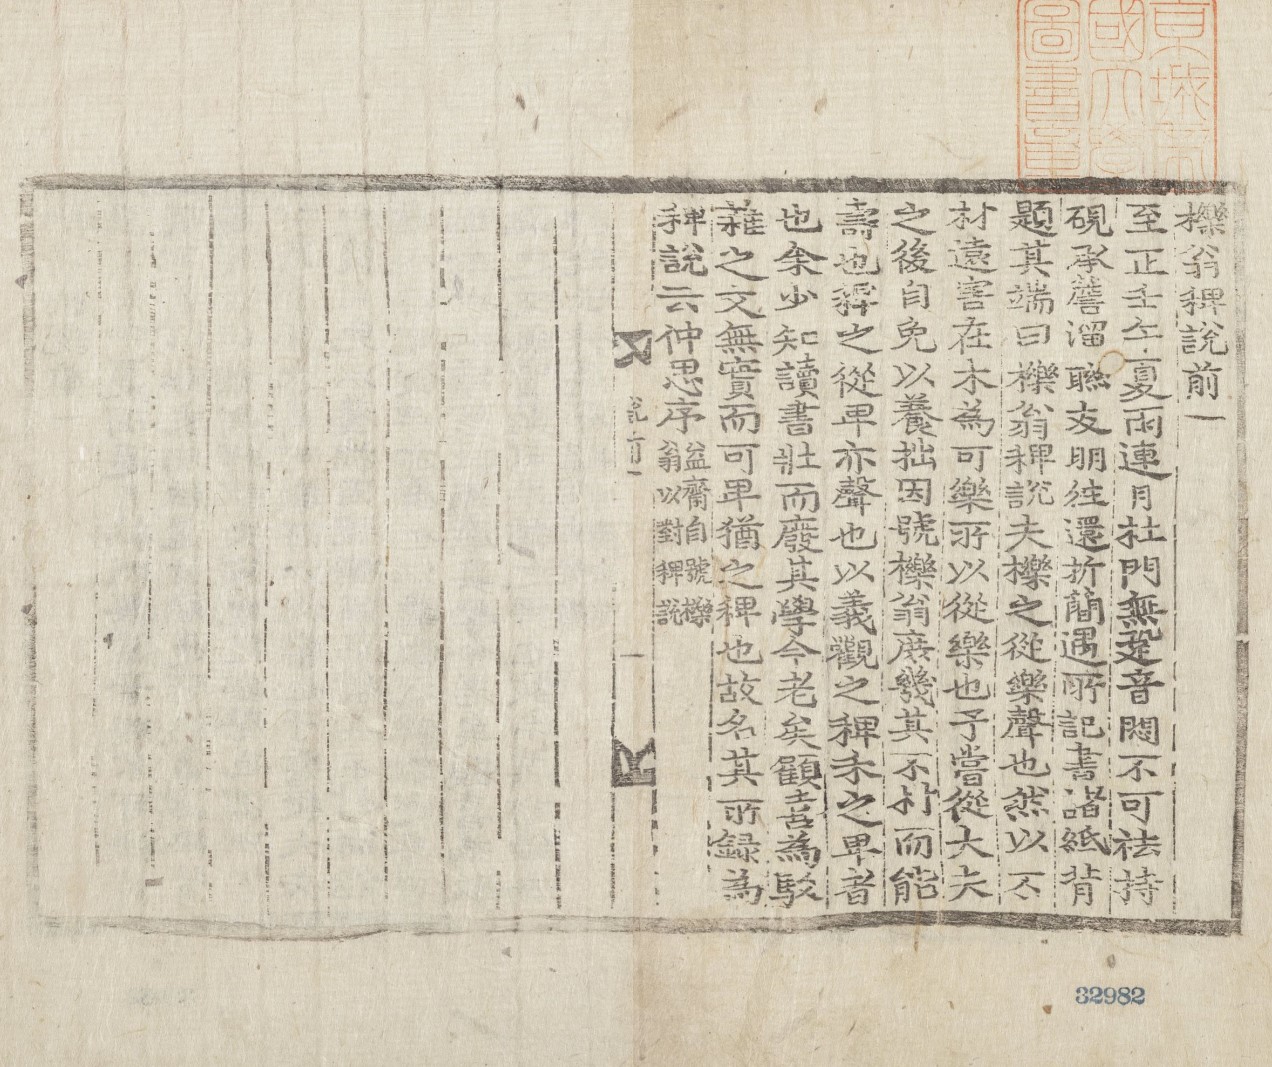 櫟翁稗說前一
至正壬午夏雨連月杜門無跫音悶不可祛持
硯承簷溜聯友朋往還折簡遇所記書諸紙背
題其端曰櫟翁稗說夫櫟之從樂聲也然以不
材遠害在木為可樂所以從樂也予嘗從大夫
之後自免以養拙因號櫟翁庶幾其不材而能
壽也稗之從卑亦聲也以義觀之稗禾之卑者
也余少知讀書壯而廢其學今老矣顧喜為駁
雜之文無實而可卑猶之稗也故名其所錄為
稗說云仲思序
益齋自號櫟
翁以對稗說
說前一
一
京城帝
國大學
圖書章
32982